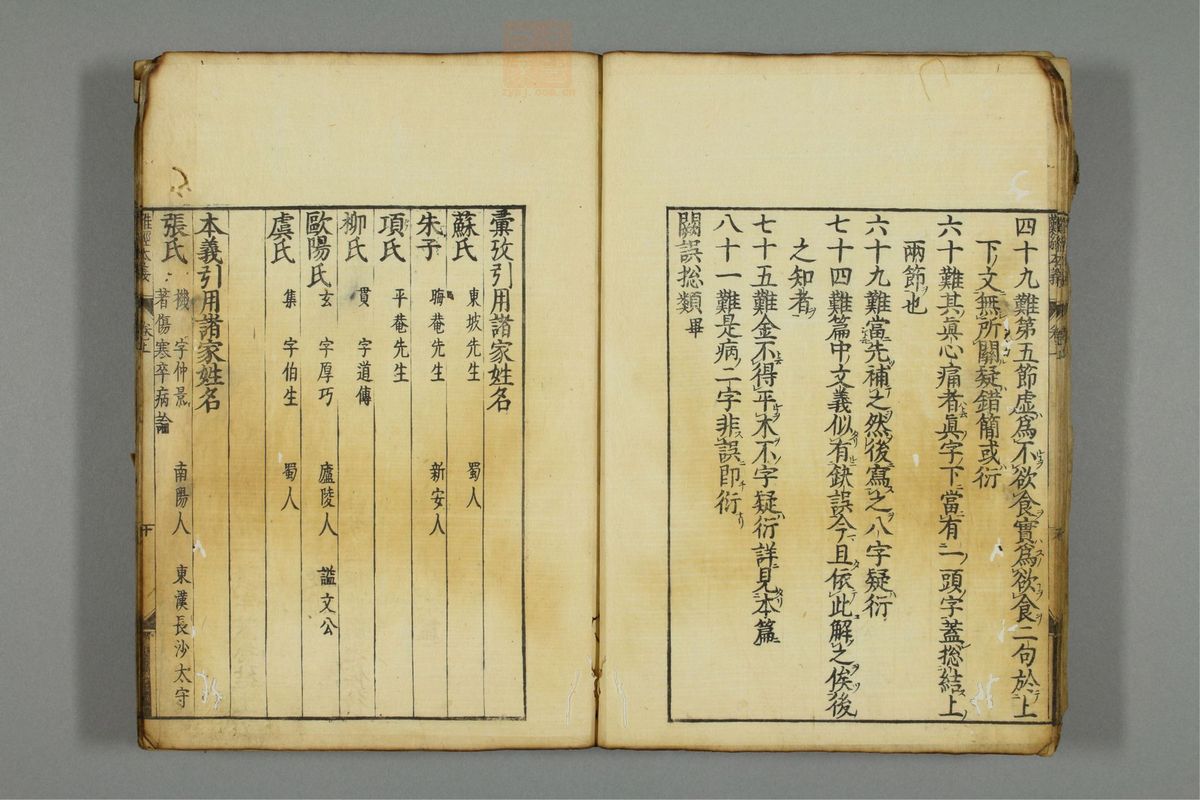 四十九難第五節虛爲不欲食實爲欲食二句於上
下文無所關疑錯簡或衍
六十難其眞心痛者眞字下當有一頭字蓋捴結上
兩節也
六十九難當先補之然後寫之八字疑衍
七十四難篇中文義似有缺誤今且依此解之俟後
之知者
七十五難金不得平木不字疑衍詳見本篇
八十一難是病二字非誤即衍
闕誤捴類畢
彙攷引用諸家姓名
蘇氏 東坡先生 蜀人
朱子 晦菴先生 新安人
項氏 平菴先生
柳氏 貫 字道傳
歐陽氏 玄 字厚巧 廬陵人 諡文公
虞氏 集 字伯生 蜀人
本義引用諸家姓名
張氏 機 字仲景 南陽人 東漢長沙太守
著傷寒卒病論
zysj.com.cn